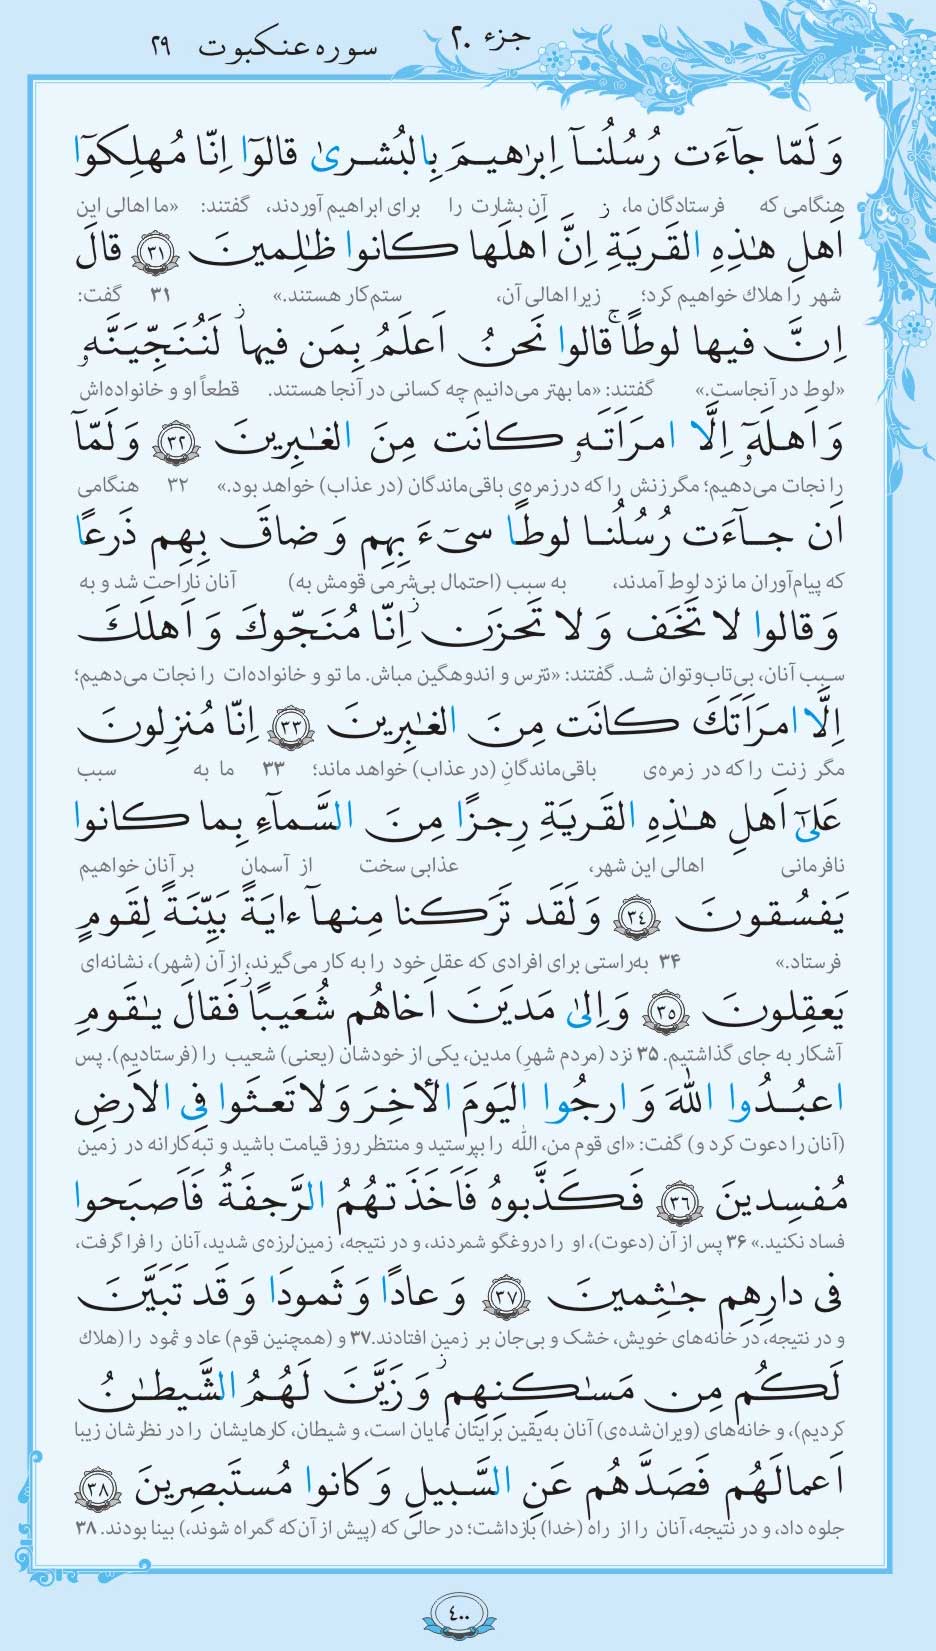 جزء ۲۰ سوره عنکبوت ۲۹
وَ لَمّا جآءَت رُسُلُنآ اِبرٰهیمَ بِالبُشریٰ قالوٓا اِنّا مُهلِکوٓا
هنگامی که فرستادگان ما، آن بشارت را برای ابراهیم آوردند، گفتند: «ما اهالی این
اَهلِ هٰذِهِ القَریَةِ اِنَّ اَهلَها کانوا ظٰلِمینَ ﴿۳۱﴾ قالَ
شهر را هلاك خواهیم کرد؛ زیرا اهالی آن، ستم‌کار هستند.» ۳۱ گفت:
اِنَّ فیها لوطًا ۚ قالوا نَحنُ اَعلَمُ بِمَن فیها ز لَنُنَجِّیَنَّهٗ
«لوط در آنجاست.» گفتند: «ما بهتر می‌دانیم چه کسانی در آنجا هستند. قطعاً او و خانواده‌اش
وَ اَهلَهٗٓ اِلَّا امرَاَتَهٗ کانَت مِنَ الغٰبِرینَ ﴿۳۲﴾ وَ لَمّآ
را نجات می‌دهیم؛ مگر زنش را که در زمره‌ی باقی‌ماندگان (در عذاب) خواهد بود.» ۳۲ هنگامی
اَن جآءَت رُسُلُنا لوطًا سیٓءَ بِهِم وَ ضاقَ بِهِم ذَرعًا
که پیام‌آوران ما نزد لوط آمدند، به سبب (احتمال بی‌شرمی قومش به) آنان ناراحت شد و به
وَ قالوا لا تَخَف وَ لا تَحزَن ز اِنّا مُنَجّوكَ وَ اَهلَكَ
سبب آنان، بی‌تاب‌وتوان شد. گفتند: «نترس و اندوهگین مباش. ما تو و خانواده‌ات را نجات می‌دهیم؛
اِلَّا امرَاَتَكَ کانَت مِنَ الغٰبِرینَ ﴿۳۳﴾ اِنّا مُنزِلونَ
مگر زنت را که در زمره‌ی باقی‌ماندگانِ (در عذاب) خواهد ماند؛ ۳۳ ما به سبب
عَلیٰٓ اَهلِ هٰذِهِ القَریَةِ رِجزًا مِنَ السَّمآءِ بِما کانوا
نافرمانی اهالی این شهر، عذابی سخت از آسمان بر آنان خواهیم
یَفسُقونَ ﴿۳٤﴾ وَ لَقَد تَرَکنا مِنهآ ءایَةً بَیِّنَةً لِقَومٍ
فرستاد.» ۳۴ به‌راستی برای افرادی که عقل خود را به کار می‌گیرند، از آن (شهر)، نشانه‌ای
یَعقِلونَ ﴿۳٥﴾ وَ اِلیٰ مَدیَنَ اَخاهُم شُعَیبًا ز فَقالَ یٰقَومِ
آشکار به جای گذاشتیم. ۳۵ نزد (مردم شهرِ) مدین، یکی از خودشان (یعنی) شعیب را (فرستادیم). پس
اعبُدُوا اللهَ وَ ارجُوا الیَومَ الأخِرَ وَ لا تَعثَوا فِی الاَرضِ
(آنان را دعوت کرد و) گفت: «ای قوم من، الله را بپرستید و منتظر روز قیامت باشید و تبه‌کارانه در زمین
مُفسِدینَ ﴿۳٦﴾ فَکَذَّبوهُ فَاَخَذَتهُمُ الرَّجفَةُ فَاَصبَحوا
فساد نکنید.» ۳۶ پس از آن (دعوت)، او را دروغگو شمردند، و در نتیجه، زمین‌لرزه‌ی شدید، آنان را فرا گرفت،
فی دارِهِم جٰثِمینَ ﴿۳۷﴾ وَ عادًا وَ ثَمودَا وَ قَد تَبَیَّنَ
و در نتیجه، در خانه‌های خویش، خشک و بی‌جان بر زمین افتادند. ۳۷ و (همچنین قوم) عاد و ثمود را (هلاك
لَکُم مِن مَسٰکِنِهِم ز وَ زَیَّنَ لَهُمُ الشَّیطٰنُ
کردیم)، و خانه‌های (ویران‌شده‌ی) آنان به‌یقین برایتان نمایان است، و شیطان، کارهایشان را در نظرشان زیبا
اَعمالَهُم فَصَدَّهُم عَنِ السَّبیلِ وَ کانوا مُستَبصِرینَ ﴿۳۸﴾
جلوه داد، و در نتیجه، آنان را از راه (خدا) بازداشت؛ در حالی که (پیش از آن‌که گمراه شوند،) بینا بودند. ۳۸
٤۰۰